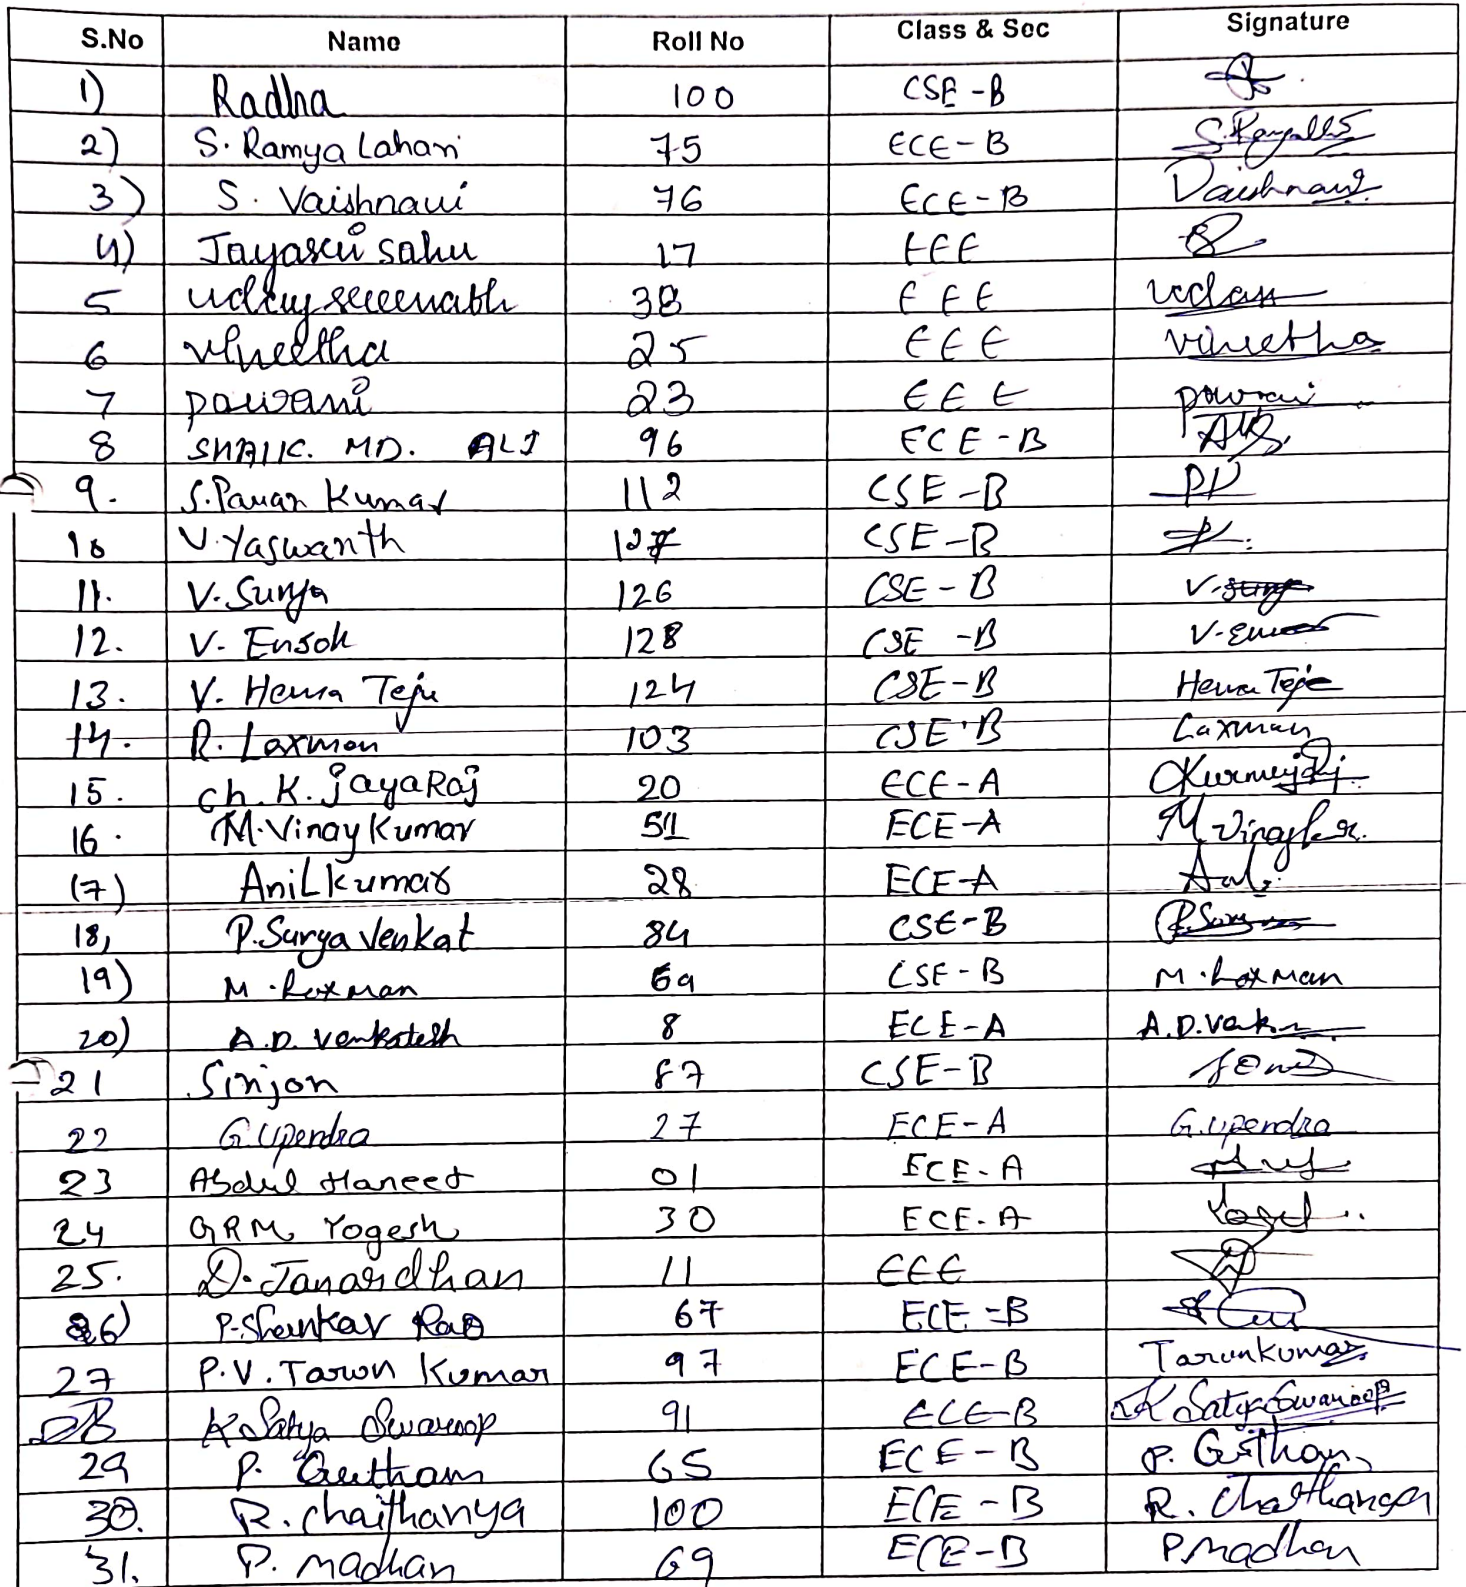 S.No Name Roll No Class & Sec Signature
1) Radha 100 CSE-B
2) S. Ramya Lahari 75 ECE-B
3) S. Vaishnavi 76 ECE-B Vaishnavi
4) Jayasri sahu 17 EEE
5 38 EEE uday
6 vineetha 25 EEE vineetha
7 pawani 23 EEE
8 SHAIK. MD. ALI 96 ECE-B
9. S. Pavan Kumar 112 CSE-B PK
10 V. Yaswanth 127 CSE-B
11. V. Surya 126 CSE-B
12. V. 128 CSE-B
13. V. Hema Teju 124 CSE-B Hema Teja
14. R. Laxman 103 CSE-B Laxman
15. ch. K. jayaRaj 20 ECE-A
16. M. Vinay Kumar 51 ECE-A
17) Anil kumar 28 ECE-A
18, P. Surya Venkat 84 CSE-B
19) M. Laxman 69 CSE-B M. Laxman
20) A.D. Venkatesh 8 ECE-A
21 Sinjon 87 CSE-B
22 G. Upendra 27 ECE-A G. upendra
23 Abdul Haneef 01 ECE-A
24 GRM Yogesh 30 ECE-A
25. D. Janardhan 11 EEE
26) P. Shankar Rao 67 ECE-B
27 P.V. Tarun Kumar 97 ECE-B Tarunkumar
28 K Satya Swaroop 91 ECE-B K Satya Swaroop
29 P. Gutham 65 ECE-B P.
30. R. chaithanya 100 ECE-B R. Chaithanya
31. P. madhan 69 ECE-B P. madhan